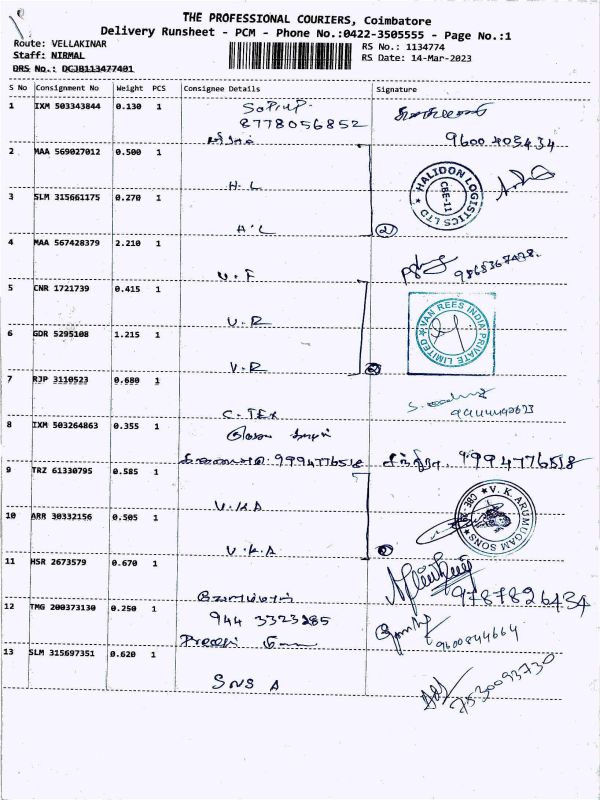 THE PROFESSIONAL COURIERS, Coimbatore
Delivery Runsheet - PCM - Phone No.:0422-3505555 - Page No.:1
Route: VELLAKINAR
RS No.: 1134774
Staff: NIRMAL
RS Date: 14-Mar-2023
DRS No.: DCJB113477401
S No Consignment No Weight PCS Consignee Details Signature
1 IXM 503343844 0.130 1
8778056852
9600 405434
2 MAA 569027012 0.500 1
H.L
HALIDON LOGISTICS LTD
CBE-11
3 SLM 315661175 0.270 1
H.L
2
4 MAA 567428379 2.210 1
V.F
5 CNR 1721739 0.415 1
V.R
VAN REES INDIA PRIVATE LIMITED
6 GDR 5295108 1.215 1
V.R
2
7 RJP 3110523 0.680 1
C.TEX
8 IXM 503264863 0.355 1
9994776518 9994776518
9 TRZ 61330795 0.585 1
V.K.A
V. K. ARUMUGAM SONS
10 ARR 30332156 0.505 1
V.K.A
11 HSR 2673579 0.670 1
9787826434
12 TMG 200373130 0.250 1
944 3323285
9600844664
13 SLM 315697351 0.620 1
SNS A
7530093730